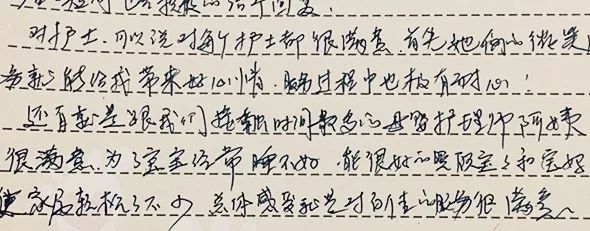 对护士，可以说对每个护士都很满意，首先她们的微笑
就能给我带来好心情，服务过程中也极有耐心！
还有就是跟我们接触时间最多的母婴护理师阿姨
很满意，为了宝宝经常睡不好，能很好的照顾宝宝和宝妈
使家属轻松了不少，总体感受就是对的服务很满意